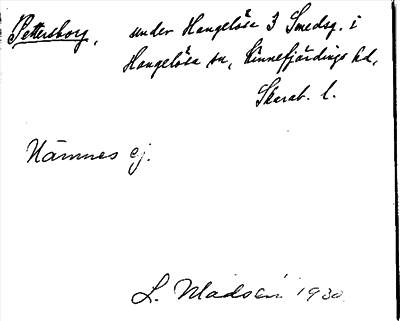 Pettersborg, under Hangelösa 3 Smedsg. i
Hangelösa sn, Kinnefjärdings hd,
Skarab. l.
Nämnes ej.
L. Madsén 1930.